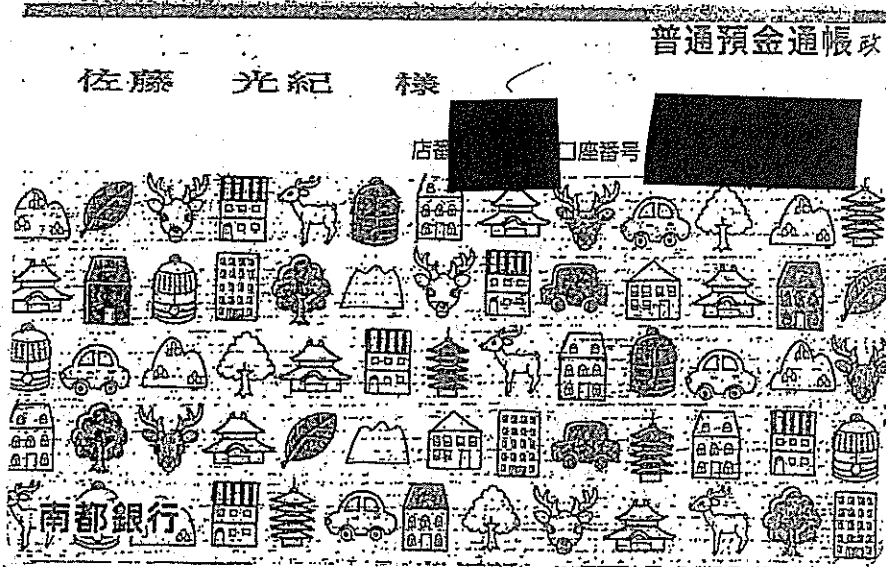 普通預金通帳 政
佐藤 光紀 様
店番 口座番号
南都銀行